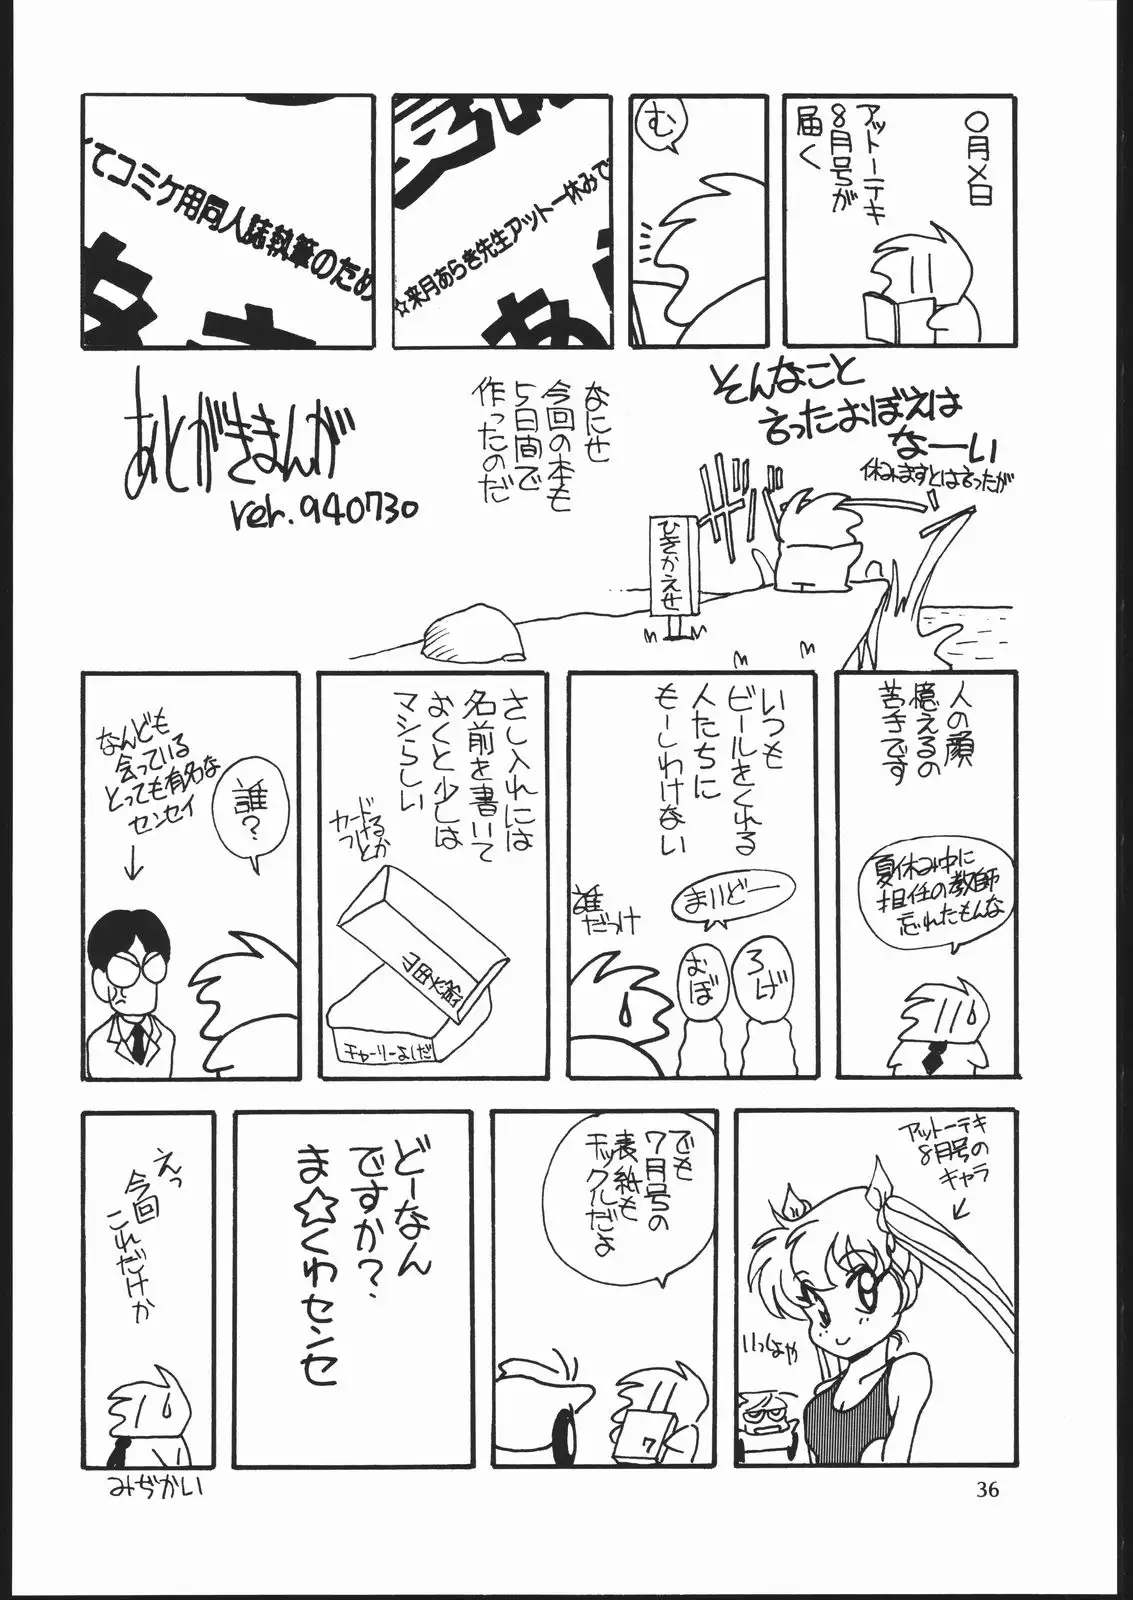 〇月×日
アットーテキ
8月号が
届く
む
☆来月あらき先生アットー休みで
てコミケ用同人誌執筆のため
そんなこと
言ったおぼえは
なーい
休みますとは言ったが
なにせ
今回の本も
5日間で
作ったのだ
ひきかえせ
あとがきまんが
ver.940730
人の顔
憶えるの
苦手です
夏休み中に
担任の教師
忘れたもんな
いつも
ビールをくれる
人たちに
もーしわけない
まいどー
ろげ
おぼ
誰
だっけ
さし入れには
名前を書いて
おくと少しは
マシらしい
カード
つけるとか
チャーリーよしだ
なんども
会っている
とっても有名な
センセイ
誰?
アットーテキ
8月号の
キャラ
いっしょや
でも
7月号の
表紙も
チックルだよ
7
どーなん
ですか?
ま☆くわセンセ
えっ
今回
これだけか
みぢかい
36